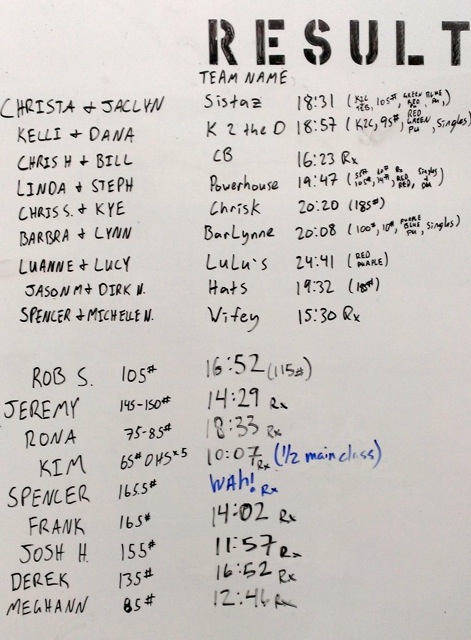 RESULT
TEAM NAME
CHRISTA & JACLYN Sistaz 18:31 (K2C, 105#, GREEN BLUE RED PU,)
KELLI & DANA K 2 the D 18:57 (K2C, 95#, RED GREEN PU, Singles)
CHRIS H & BILL CB 16:23 Rx
LINDA & STEPH Powerhouse 19:47 (55# 105#, 14#, Rx RED, Singles
CHRIS S. & KYE Chrisk 20:20 (185#)
BARBRA & LYNN BarLynne 20:08 (100#, 10#, PURPLE BLUE PU, Singles)
LUANNE & LUCY LuLu's 24:41 (RED PURPLE)
JASON M & DIRK N. Hats 19:32 (18#)
SPENCER & MICHELLE N. Wifey 15:30 Rx
ROB S. 105# 16:52 (115#)
JEREMY 145-150# 14:29 Rx
RONA 75-85# 18:33 Rx
KIM 65# OHS x5 10:07 Rx (1/2 main class)
SPENCER 165.5# WAH! Rx
FRANK 165# 14:02 Rx
JOSH H. 155# 11:57 Rx
DEREK 135# 16:52 Rx
MEGHANN 85# 12:46 Rx